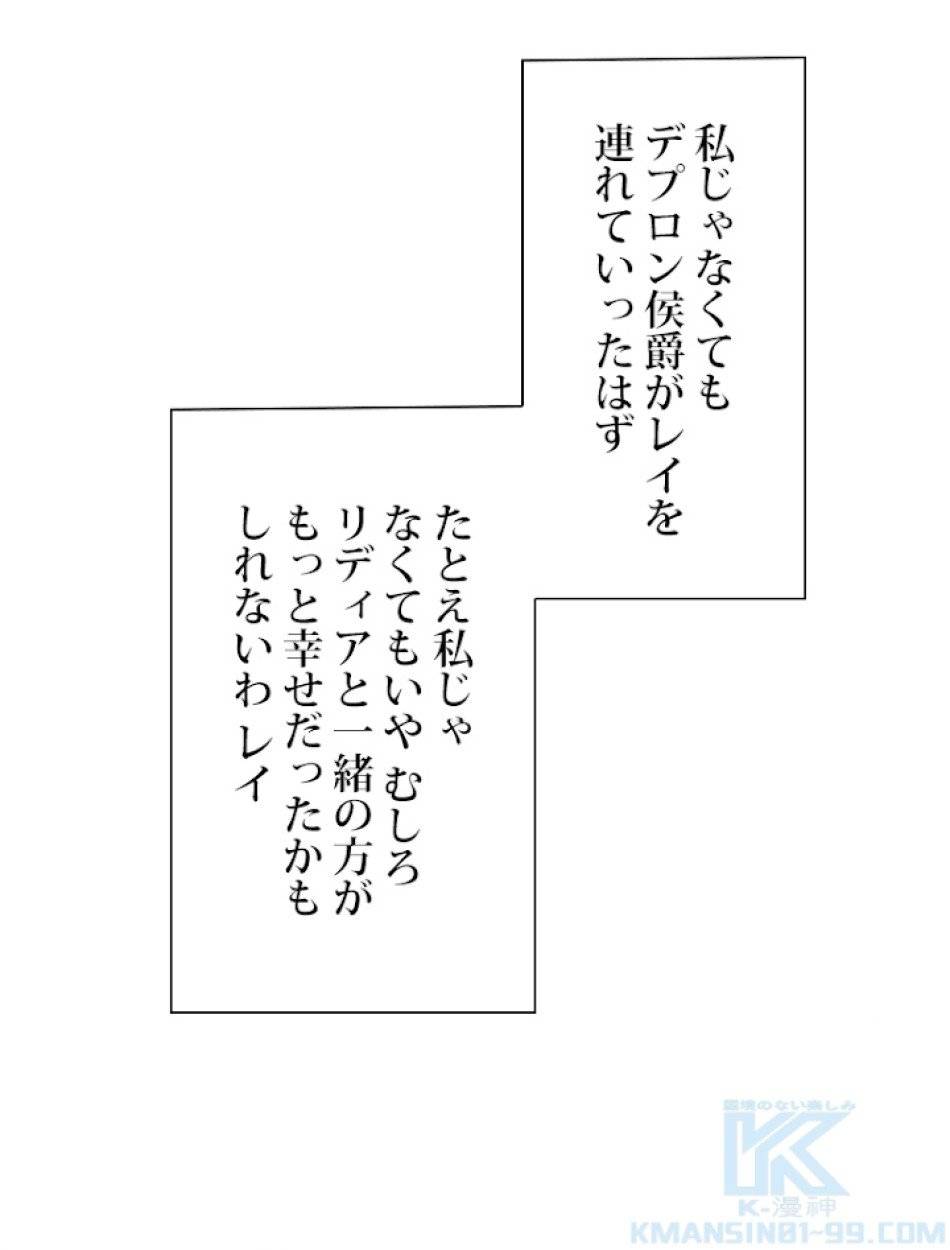 私じゃなくても
デプロン侯爵がレイを
連れていったはず
たとえ私じゃ
なくてもいや むしろ
リディアと一緒の方が
もっと幸せだったかも
しれないわ レイ
国境のない楽しみ
K-漫神
KMANSIN01~99.COM